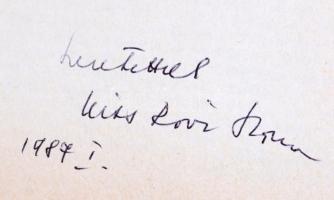 Szeretettel
Kiss Kovi Ilona
1987 I.